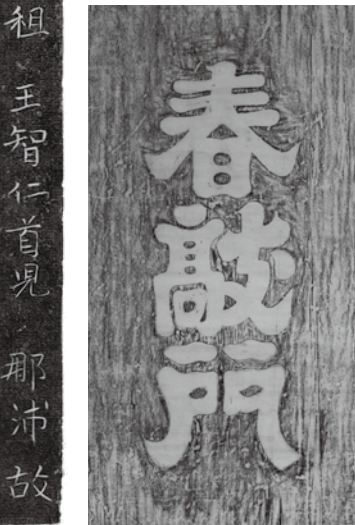 租 王智仁首児 那沛故
春敲門